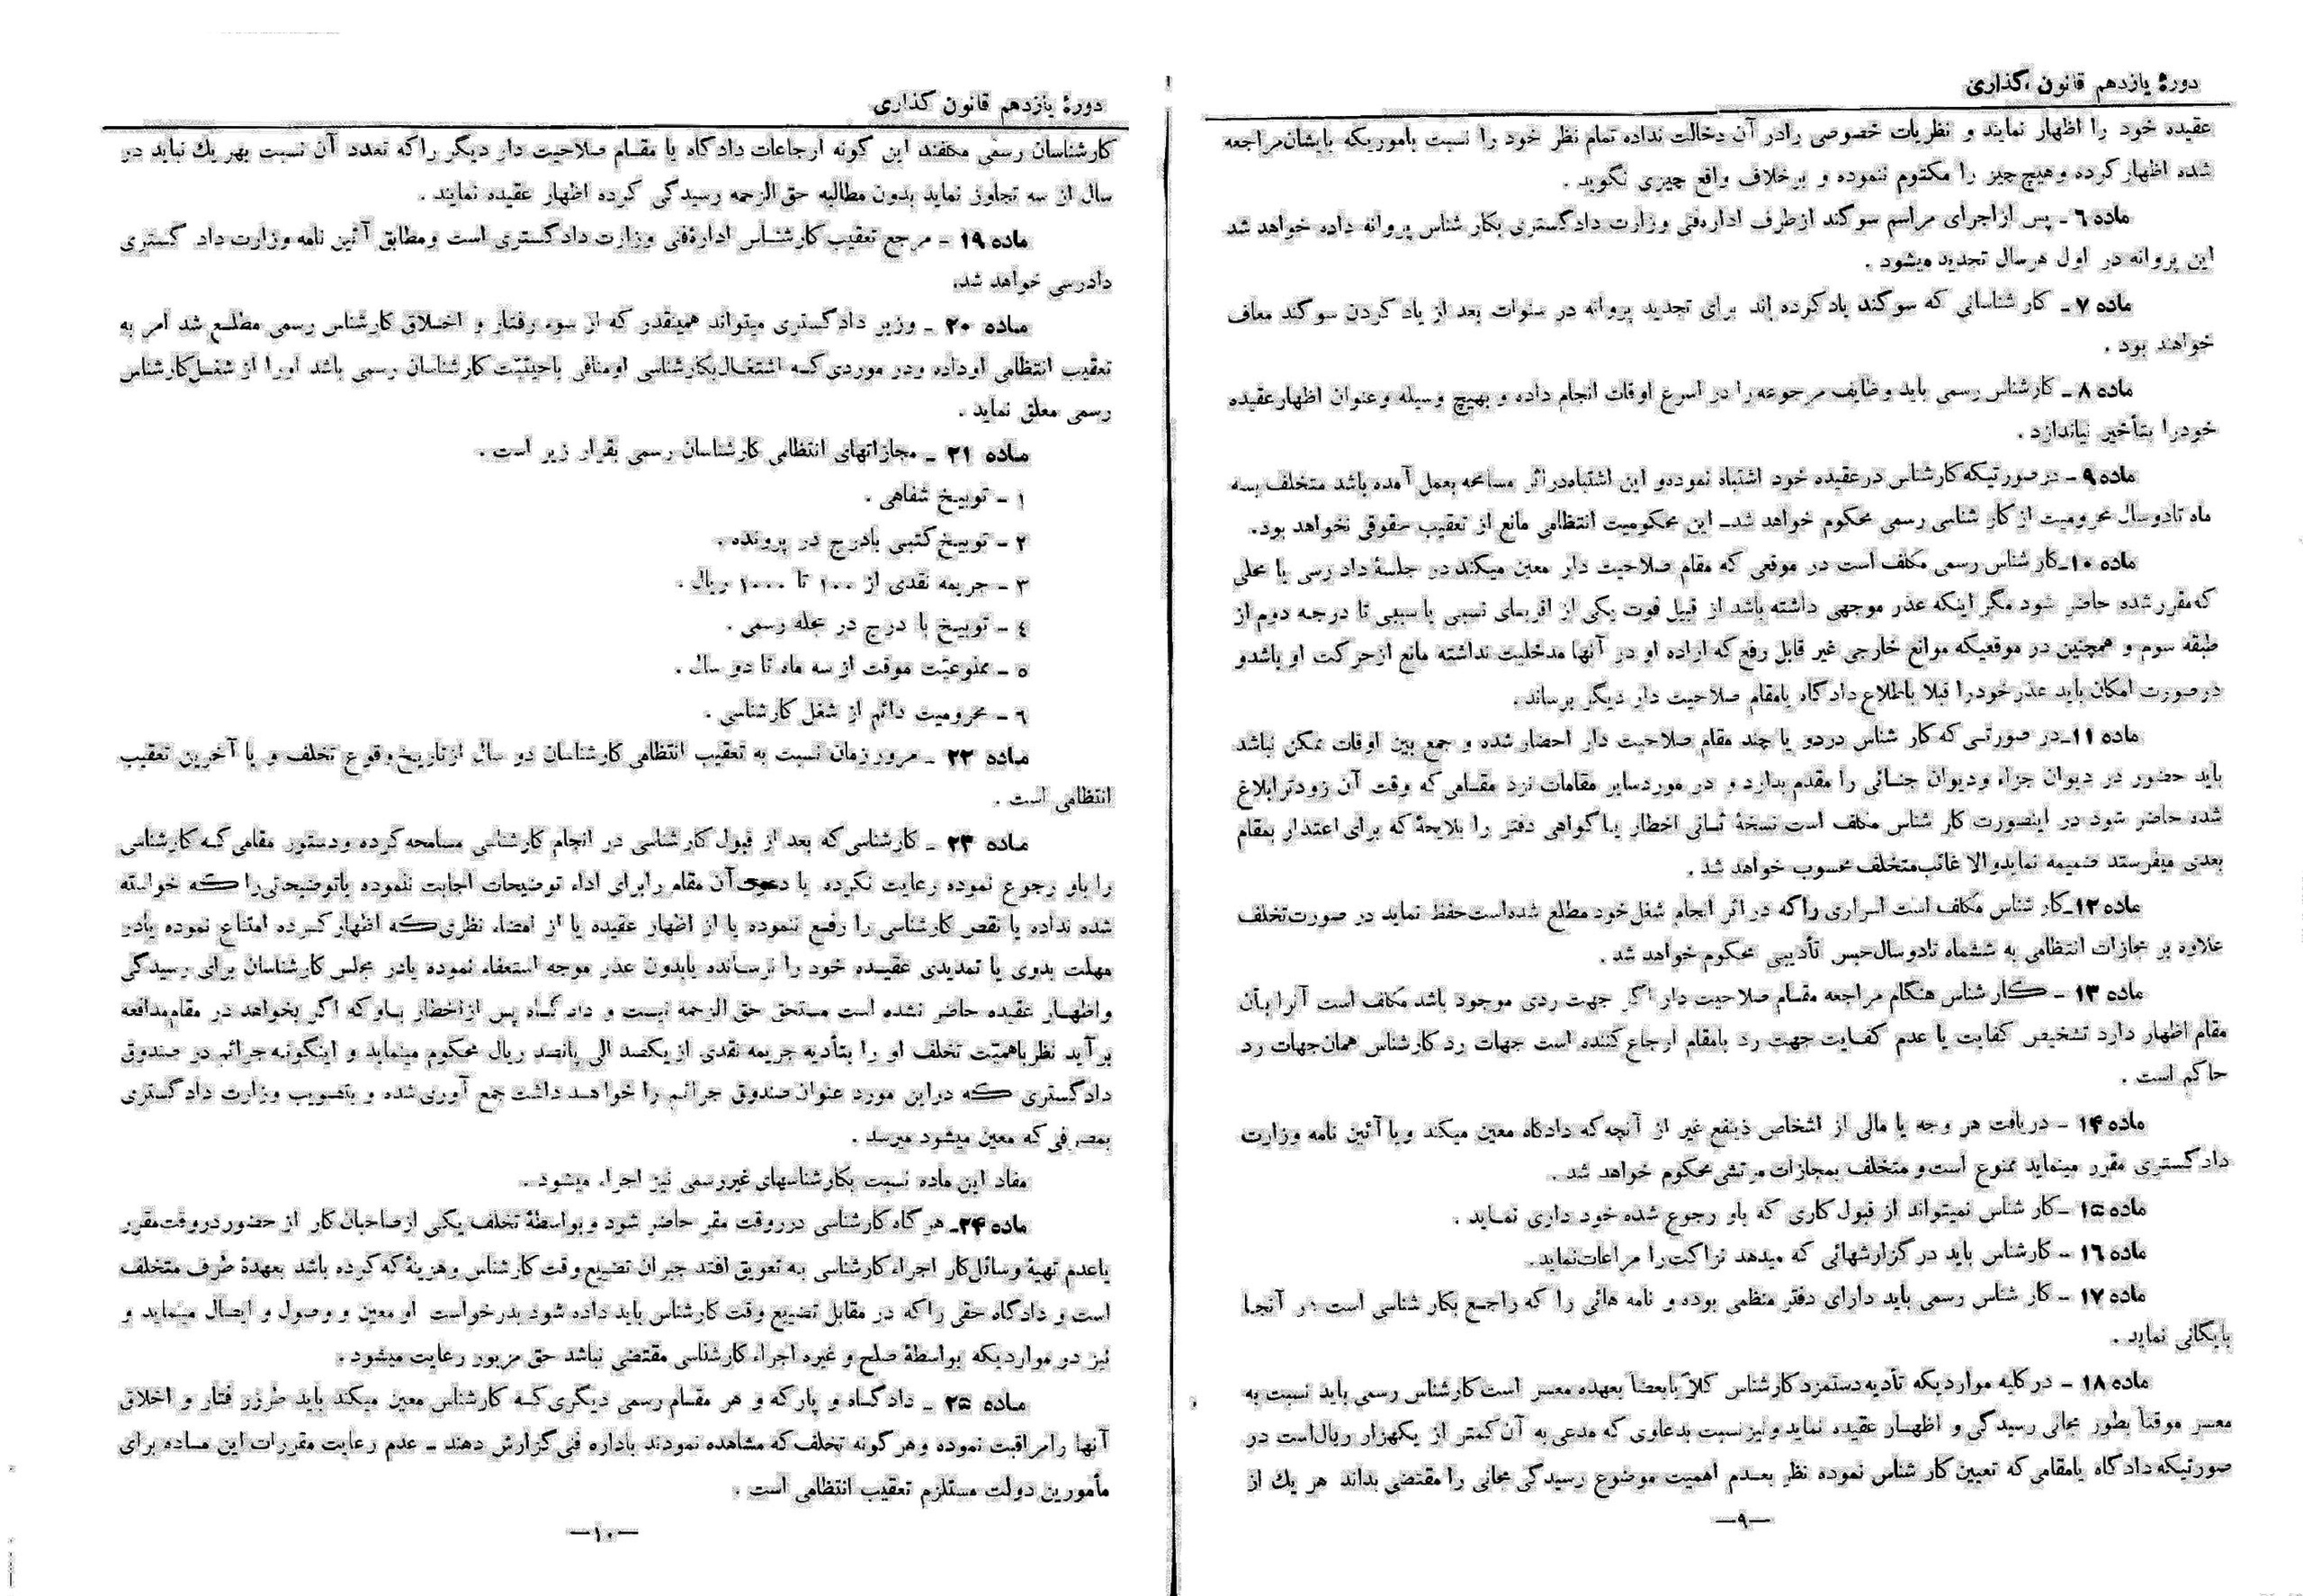 دورهٔ یازدهم قانون گذاری
عقیده خود را اظهار نمایند و نظریات خصوصی رادر آن دخالت نداده تمام نظر خود را نسبت بأموریکه بایشان‌مراجعه
شده اظهار کرده وهیچ چیز را مکتوم ننموده و برخلاف واقع چیزی نگوید .
ماده ٦ ـ پس ازاجرای مراسم سوگند ازطرف اداره‌فنی وزارت دادگستری بکار شناس پروانه داده خواهد شد
این پروانه در اول هرسال تجدید میشود .
ماده ۷ ـ کار شناسانی که سوگند یادکرده اند برای تجدید پروانه در سنوات بعد از یاد کردن سوگند معاف
خواهند بود .
ماده ۸ ـ کارشناس رسمی باید وظایف مرجوعه را در اسرع اوقات انجام داده و بهیچ وسیله وعنوان اظهارعقیده
خودرا بتأخیر نیاندازد .
ماده ۹ ـ درصورتیکه کارشناس درعقیده خود اشتباه نموده‌و این اشتباه‌دراثر مسامحه بعمل آمده باشد متخلف بسه
ماه تادوسال محرومیت از کار شناسی رسمی محکوم خواهد شد ـ این محکومیت انتظامی مانع از تعقیب حقوقی نخواهد بود.
ماده ۱۰ـ کار شناس رسمی مکلف است در موقعی که مقام صلاحیت دار معین میکند در جلسهٔ داد رسی یا محلی
که‌مقررشده حاضر شود مگر اینکه عذر موجهی داشته باشد از قبیل فوت یکی از اقربهای نسبی یا سببی تا درجه دوم از
طبقه سوم و همچنین در موقعیکه موانع خارجی غیر قابل رفع که اراده او در آنها مدخلیت نداشته مانع ازحرکت او باشدو
درصورت امکان باید عذرخودرا قبلا باطلاع دادگاه یامقام صلاحیت دار دیگر برساند .
ماده ۱۱ـ در صورتی که کار شناس دردو یا چند مقام صلاحیت دار احضار شده و جمع بین اوقات ممکن نباشد
باید حضور در دیوان جزاء ودیوان جنائی را مقدم بدارد و در موردسایر مقامات نزد مقامی که وقت آن زودترابلاغ
شده حاضر شود در اینصورت کار شناس مکلف است نسخهٔ ثانی اخطار یا گواهی دفتر را بلایحهٔ که برای اعتذار بمقام
بعدی میفرستد ضمیمه نمایدوالا غائب‌متخلف محسوب خواهد شد .
ماده ۱۲ـ کار شناس مکلف است اسراری راکه در اثر انجام شغل خود مطلع شده‌است‌حفظ نماید در صورت‌تخلف
علاوه بر مجازات انتظامی به ششماه تادوسال‌حبس تأدیبی محکوم خواهد شد .
ماده ۱۳ ـ کار شناس هنگام مراجعه مقام صلاحیت دار اگر جهت ردی موجود باشد مکلف است آنرا بآن
مقام اظهار دارد تشخیص کفایت یا عدم کفایت جهت رد بامقام ارجاع‌کننده است جهات رد کارشناس همان‌جهات رد
حاکم است .
ماده ۱۴ ـ دریافت هر وجه یا مالی از اشخاص ذینفع غیر از آنچه که دادگاه معین میکند ویا آئین نامه وزارت
دادگستری مقرر مینماید ممنوع است و متخلف بمجازات مرتشی محکوم خواهد شد .
ماده ۱۵ ـ کار شناس نمیتواند از قبول کاری که باو رجوع شده خود داری نماید .
ماده ۱٦ ـ کارشناس باید در گزارشهائی که میدهد نزاکت را مراعات‌نماید.
ماده ۱۷ ـ کار شناس رسمی باید دارای دفتر منظمی بوده و نامه هائی را که راجع بکار شناسی است در آنجا
بایگانی نماید .
ماده ۱۸ ـ درکلیه مواردیکه تأدیه‌دستمزدکارشناس کلاً یابعضاً بعهده معسر است‌کارشناس رسمی باید نسبت به
معسر موقتاً بطور مجانی رسیدگی و اظهار عقیده نماید ونیز نسبت بدعاوی که مدعی به آن کمتر از یکهزار ریال‌است در
صورتیکه دادگاه یامقامی که تعیین کار شناس نموده نظر بعدم اهمیت موضوع رسیدگی مجانی را مقتضی بداند هر یك از
—۹—
دورهٔ یازدهم قانون گذاری
کارشناسان رسمی مکلفند این گونه ارجاعات دادگاه یا مقام صلاحیت دار دیگر راکه تعدد آن نسبت بهریك نباید در
سال از سه تجاوز نماید بدون مطالبه حق الزحمه رسیدگی کرده اظهار عقیده نمایند .
ماده ۱۹ ـ مرجع تعقیب کارشناس ادارهٔفنی وزارت دادگستری است ومطابق آئین نامه وزارت داد گستری
دادرسی خواهد شد.
ماده ۲۰ ـ وزیر دادگستری میتواند همینقدر که از سوء رفتار و اخلاق کارشناس رسمی مطلع شد امر به
تعقیب انتظامی اوداده ودر موردی‌که اشتغال‌بکارشناسی اومنافی باحیثیّت کارشناسان رسمی باشد اورا از شغل‌کارشناس
رسمی معلق نماید .
ماده ۲۱ ـ مجازاتهای انتظامی کارشناسان رسمی بقرار زیر است .
۱ ـ توبیخ شفاهی .
۲ ـ توبیخ کتبی بادرج در پرونده .
۳ ـ جریمه نقدی از ۱۰۰ تا ۱۰۰۰ ریال .
٤ ـ توبیخ با درج در مجله رسمی .
٥ ـ ممنوعیّت موقت از سه ماه تا دو سال .
٦ ـ محرومیت دائم از شغل کارشناسی .
ماده ۲۲ ـ مرور زمان نسبت به تعقیب انتظامی کارشناسان دو سال ازتاریخ وقوع تخلف و یا آخرین تعقیب
انتظامی است .
ماده ۲۳ ـ کارشناسی که بعد از قبول کار شناسی در انجام کارشناسی مسامحه کرده ودستور مقامی که کارشناسی
را باو رجوع نموده رعایت نکرده یا دعوت آن مقام رابرای اداء توضیحات اجابت ننموده یاتوضیحاتی‌را که خواسته
شده نداده یا نقص کارشناسی را رفع ننموده یا از اظهار عقیده یا از امضاء نظری‌که اظهارکرده امتناع نموده یادر
مهلت بدوی یا تمدیدی عقیده خود را نرسانده یابدون عذر موجه استعفاء نموده یادر مجلس کارشناسان برای رسیدگی
واظهار عقیده حاضر نشده است مستحق حق الزحمه نیست و دادگاه پس ازاخطار باوکه اگر بخواهد در مقام‌مدافعه
برآید نظرباهمیّت تخلف او را بتأدیه جریمه نقدی ازیکصد الی پانصد ریال محکوم مینماید و اینگونه جرائم در صندوق
دادگستری که دراین مورد عنوان صندوق جرائم را خواهد داشت جمع آوری‌شده و بتصویب وزارت دادگستری
بمصرفی که معین میشود میرسد .
مفاد این ماده نسبت بکارشناسهای غیررسمی نیز اجراء میشود .
ماده ۲۴ـ هرگاه کارشناسی درروقت مقر حاضر شود وبواسطهٔ تخلف یکی ازصاحبان کار از حضوردروقت‌مقرر
یاعدم تهیهٔ وسائل‌کار اجراء کارشناسی به تعویق افتد جبران تضییع وقت کارشناس وهزینهٔ که کرده باشد بعهدهٔ طرف متخلف
است و دادگاه حقی راکه در مقابل تضییع وقت کارشناس باید داده شود بدرخواست او معین و وصول و ایصال مینماید و
نیز در مواردیکه بواسطهٔ صلح و غیره اجراء کارشناسی مقتضی نباشد حق مزبور رعایت میشود .
ماده ۲۵ ـ دادگاه و پارکه و هر مقام رسمی دیگری‌که کارشناس معین میکند باید طرزر فتار و اخلاق
آنها رامراقبت نموده وهر گونه تخلف که مشاهده نمودند باداره فنی گزارش دهند ـ عدم رعایت مقررات این ماده برای
مأمورین دولت مستلزم تعقیب انتظامی است .
—۱۰—